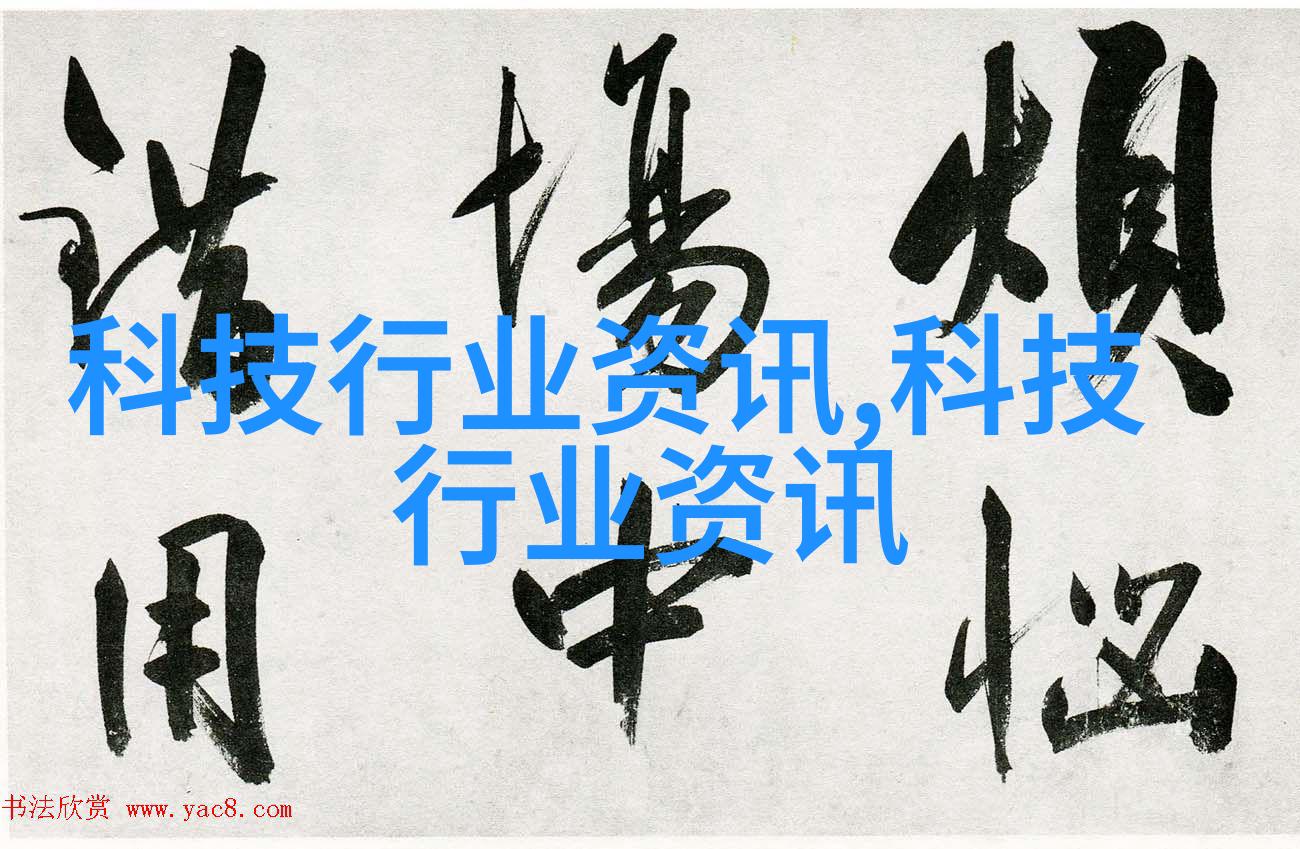 煩惱
場中
用
科技行业资讯,科技
行业资讯
书法欣赏 www.yac8.com